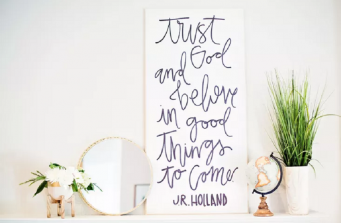 trust
God
and
believe
in good
things
to come
J.R. HOLLAND